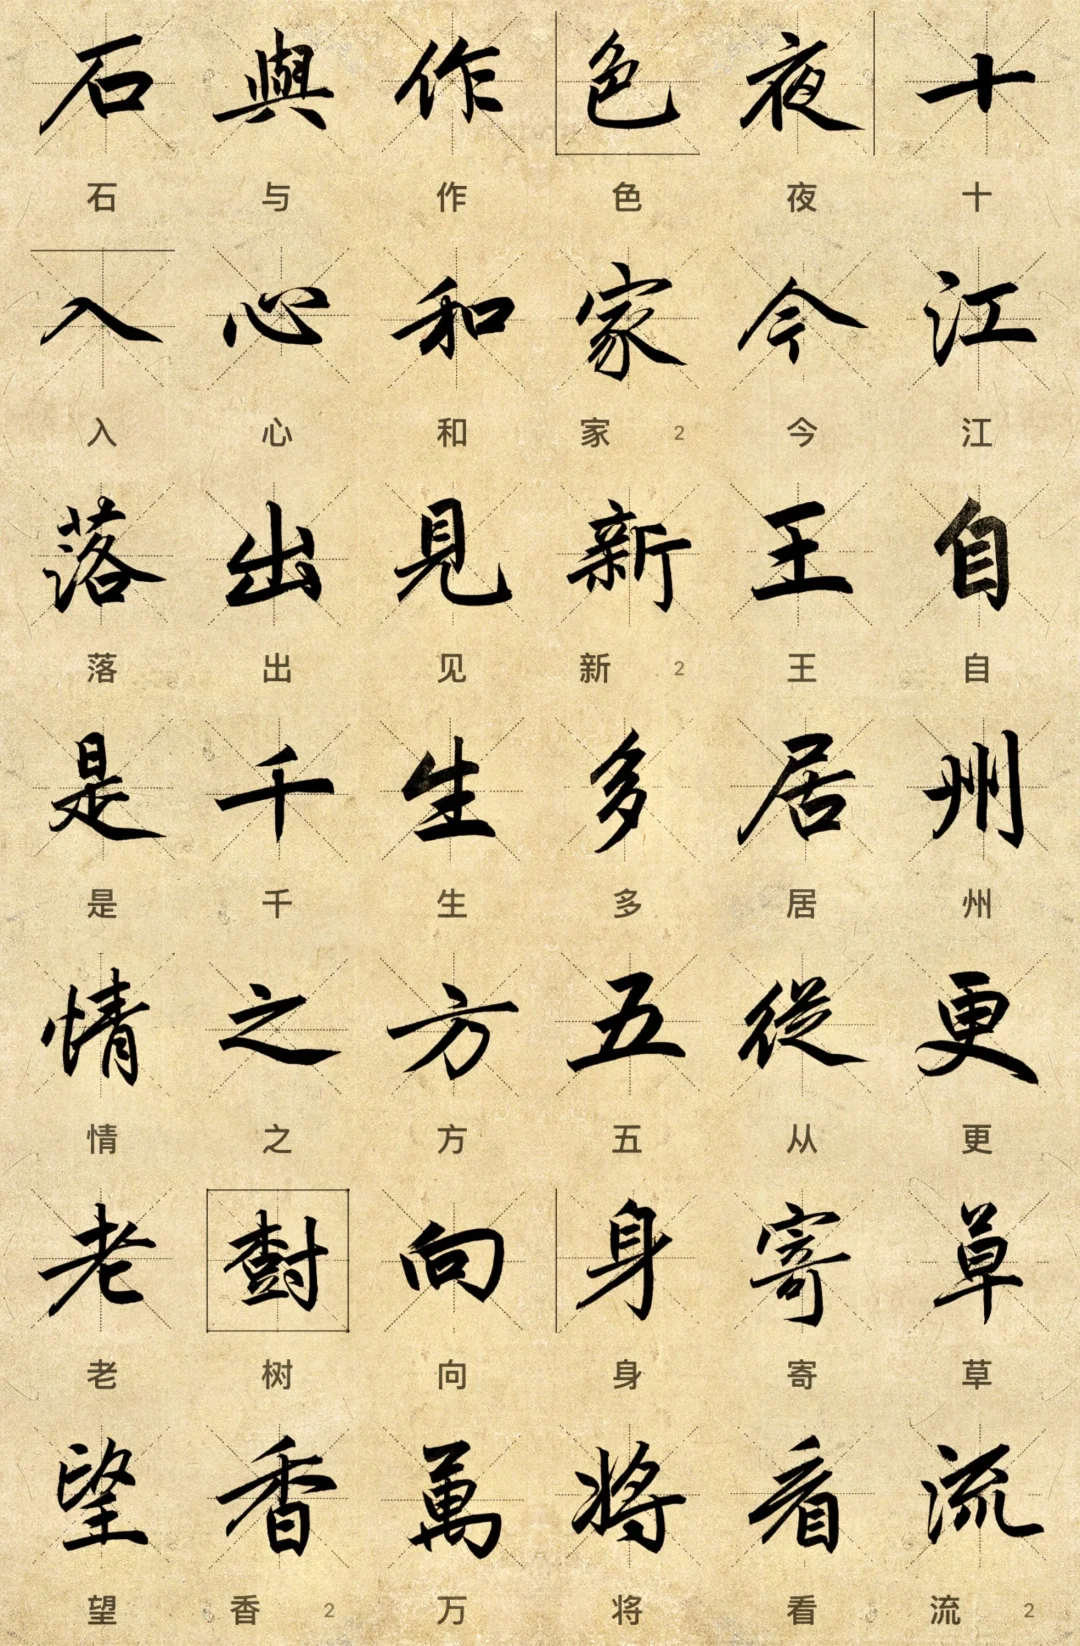 石 與 作 色 夜 十
石 与 作 色 夜 十
入 心 和 家 今 江
入 心 和 家 2 今 江
落 出 見 新 王 自
落 出 见 新 2 王 自
是 千 生 多 居 州
是 千 生 多 居 州
情 之 方 五 從 更
情 之 方 五 从 更
老 樹 向 身 寄 草
老 树 向 身 寄 草
望 香 萬 将 看 流
望 香 2 万 将 看 流 2